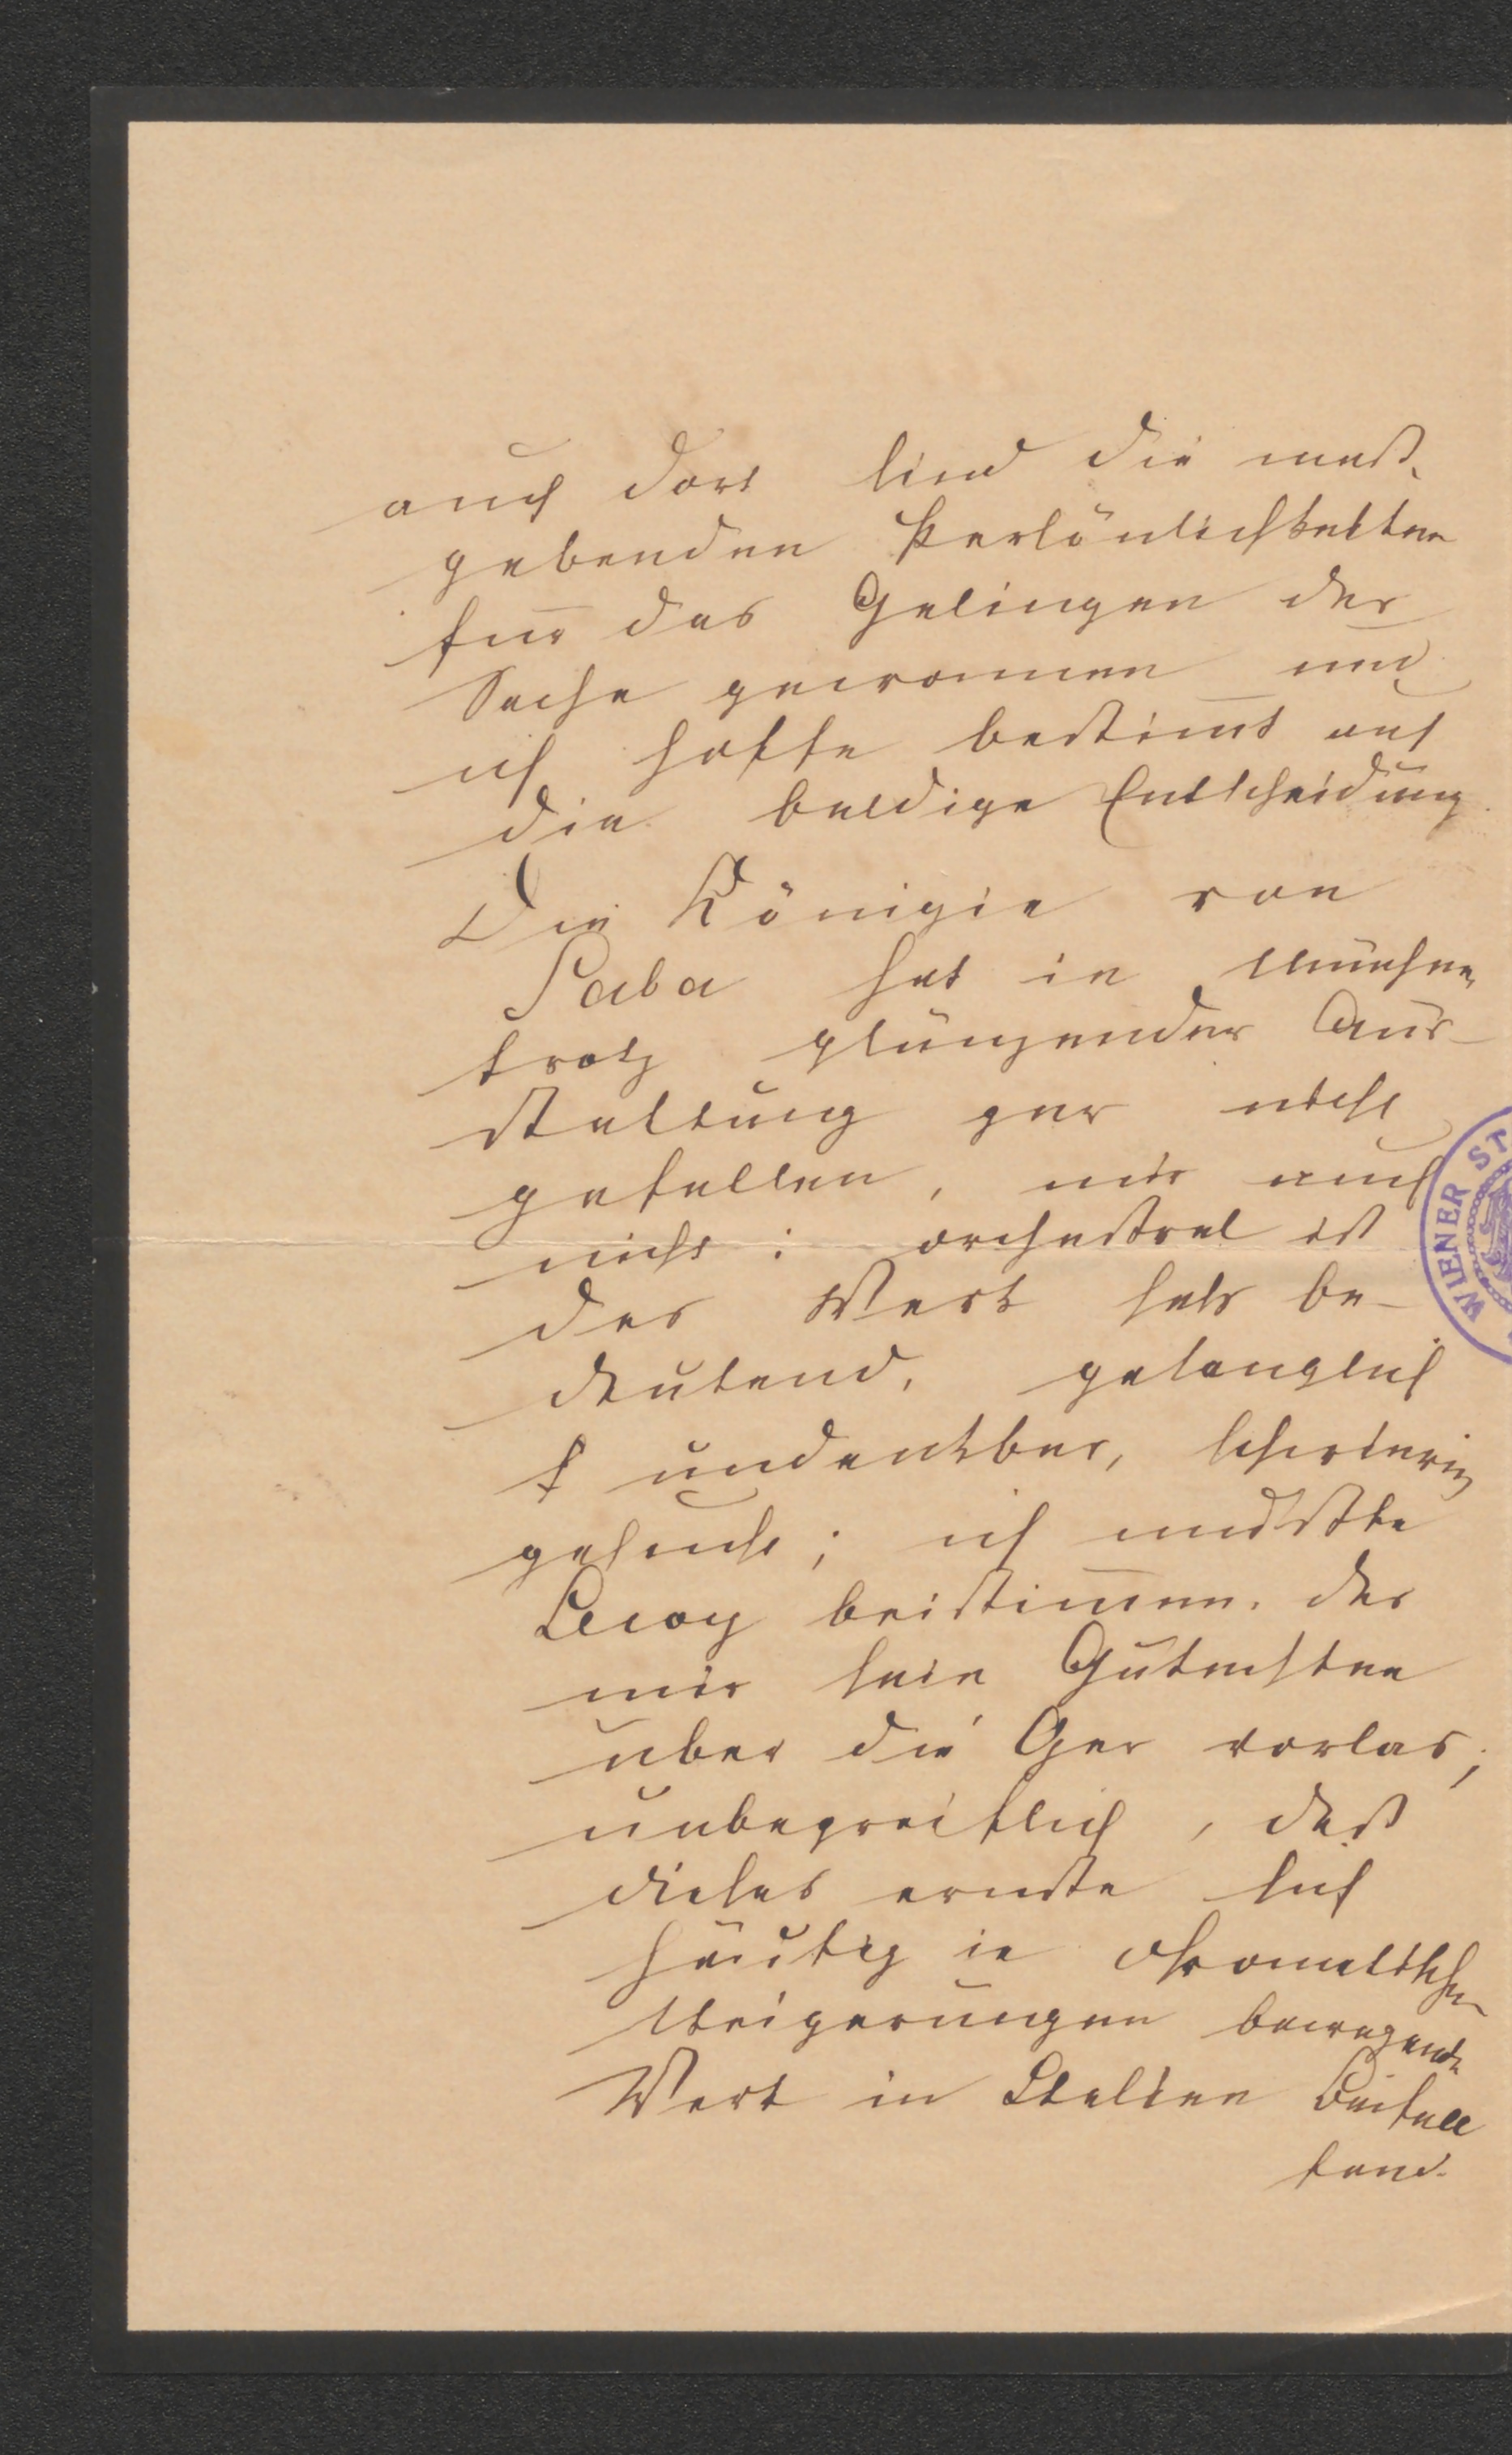 auch dort sind die maß-
gebenden Persönlichkeiten
für das Gelingen der
Sache gewonnen und
ich hoffe bestim̄t auf
die baldige Entscheidung.
Die Königin von
Saba hat in München,
trotz glänzender Aus-
stattung gar nicht
gefallen, mir auch
nicht: orchestral ist
das Werk sehr be-
deutend, gesanglich
undankbar, schwierig
gesucht; ich mußte
Levy beistim̄en, der
mir sein Gutachten
über die Oper vorlas;
unbegreiflich, daß
dieses ernste sich
häufig in chromatischen
Steigerungen bewegende
Werk in Italien Beifall
fand.
WIENER ST